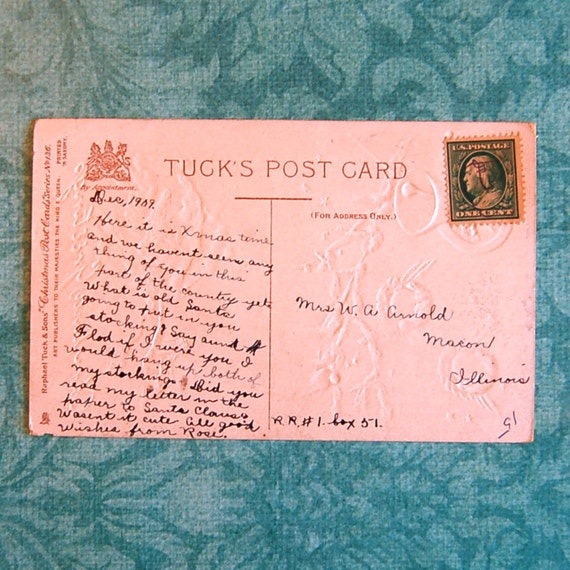 TUCK'S POST CARD
By Appointment.
(FOR ADDRESS ONLY.)
U.S. POSTAGE
ONE CENT
Raphael Tuck & Sons' "Christmas" Post Card Series No 136.
ART PUBLISHERS TO THEIR MAJESTIES THE KING & QUEEN.
PRINTED
IN SAXONY
Dec, 1909.
Here it is Xmas time
and we havent seen any
thing of you in this
part of the country yet.
What is old Santa
going to put in you
stocking? Say aunt
Flod if I were you I
would hang up both of
my stockings. Did you
read my letter in the
paper to Santa Claus.
Wasent it cute. All good
wishes from Rose.
Mrs W. A. Arnold
Macon
Illinois
R.R.#1. box 51.